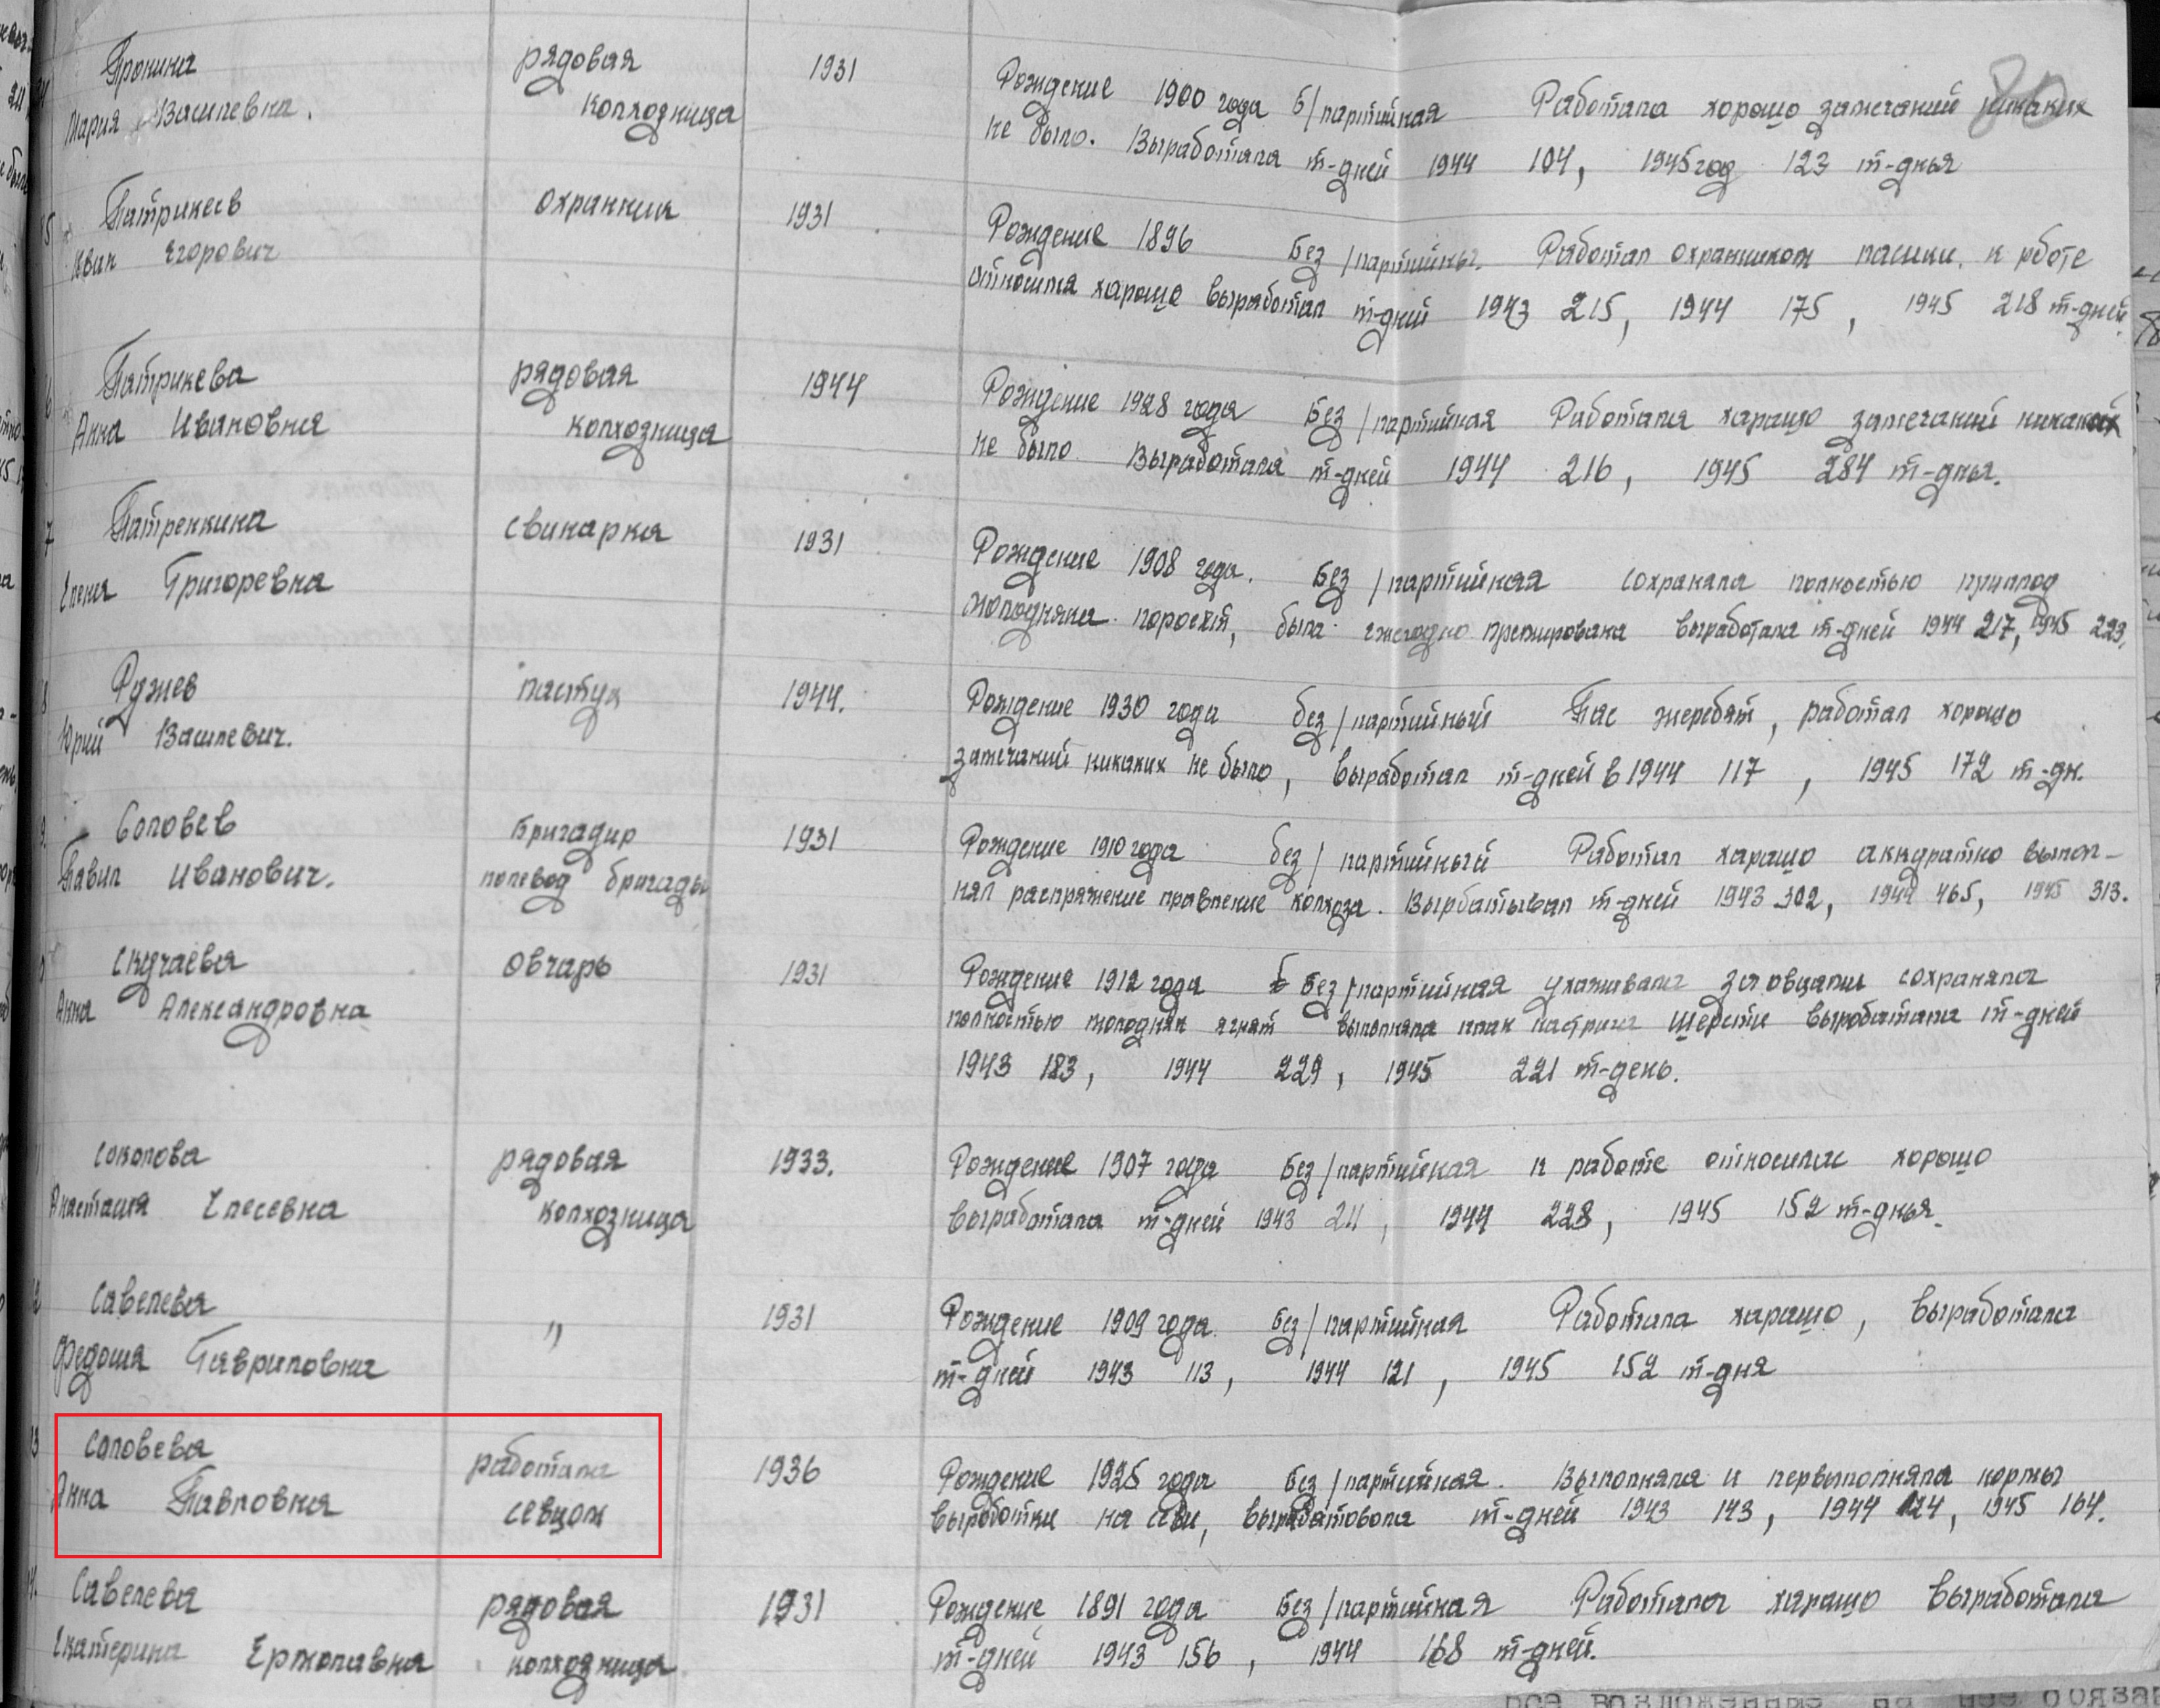 80
Пронина рядовая 1931 Рождение 1900 года Б/партийная Работала хорошо замечаний никаких
Мария Василевна. колхозница не было. Выработала т-дней 1944 104, 1945 год 123 т-дньа
5 Патрикеев охранник 1931 Рождение 1896 Без/партийны. Работал охраником пасики. к рботе
Иван Егорович относился харошо выработал т-дней 1943 215, 1944 175, 1945 218 т-дней.
6 Патрикева рядовая 1944 Рождение 1928 года Без/партийная Работала харашо замечаний никаких
Анна Ивановна колхозница не было Выработала т-дней 1944 216, 1945 284 т-дньа.
7 Патренкина свинарка 1931 Рождение 1908 года. Без/партийная сохраняла полностью приплод
Елена Григоревна молодняка поросят, была ежегодно премирована выработала т-дней 1944 217, 1945 223.
8 Руднев пастух 1944. Рождение 1930 года без/партийный Пас жеребят, работал хорошо
Юрий Василевич. замечаний никаких не было, выработал т-дней в 1944 117, 1945 172 т-дн.
9. Соловев Бригадир 1931 Рождение 1910 года без/партийный Работал харашо аккуратно выпол-
Павил Иванович. полевод бригады нял распряжение правление колхоза. Вырбатывал т-дней 1943 302, 1944 465, 1945 313.
Скучаева овчарь 1931 Рождение 1912 года Без/партийная ухаживала за овцами сохраняла
Анна Александровна полностью молодняк ягнят выполняла план настрига шерсти выроботала т-дней
1943 183, 1944 229, 1945 221 т-день.
Соколова рядовая 1933. Рождение 1907 года Без/партийная к работе относилас хорошо
Анастасия Елесевна колхозница выработала т-дней 1943 211, 1944 228, 1945 152 т-дньа.
Савелева " 1931 Рождение 1909 года Без/партийная Работала харашо, выработала
Федосия Гавриловна т-дней 1943 113, 1944 121, 1945 152 т-дня
3 Соловева работала 1936 Рождение 1925 года Без/партийная. Выполняла и первыполняла нормы
Анна Павловна севцом выработки на севи, вырабатовола т-дней 1943 143, 1944 124, 1945 164.
Савелева рядовая 1931 Рождение 1891 года Без/партийная Работала харашо выработала
Екатерина Ермолавна колхозница т-дней 1943 156, 1944 168 т-дней.
все возложенные на нее обязан